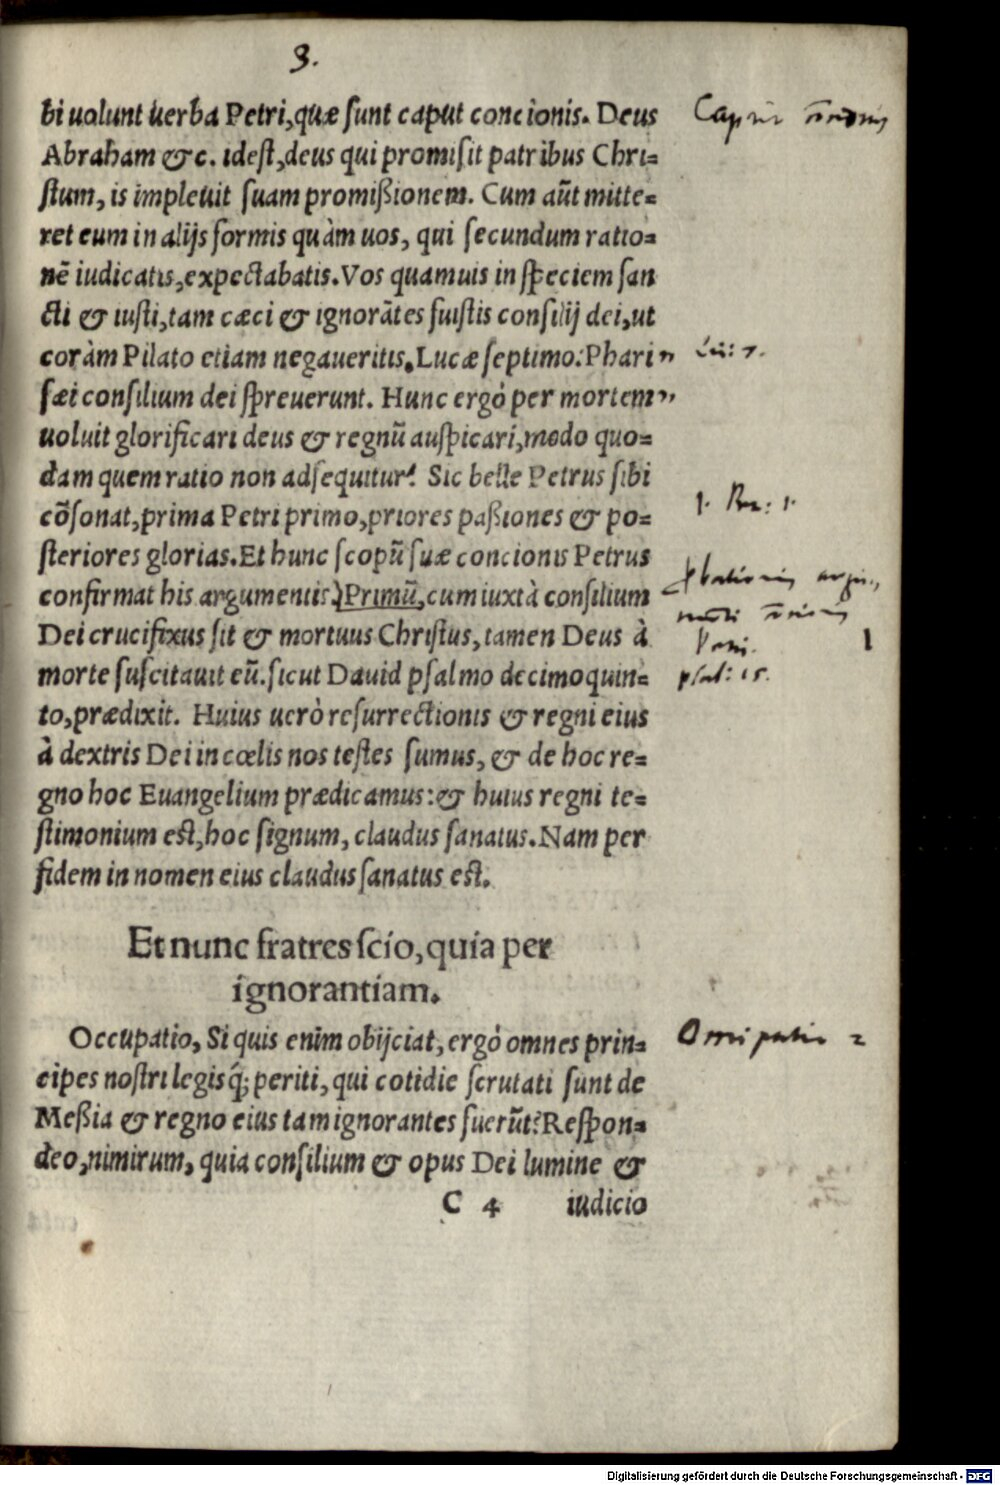 3.
bi uolunt uerba Petri, quæ sunt caput concionis. Deus
Abraham &c. idest, deus qui promisit patribus Chri=
stum, is impleuit suam promißionem. Cum aũt mitte=
ret eum in alijs formis quàm uos, qui secundum ratio=
nẽ iudicatis, expectabatis. Vos quamuis in speciem san
cti & iusti, tam cæci & ignorãtes fuistis consilij dei, ut
coràm Pilato etiam negaueritis. Lucæ septimo: Phari
sæi consilium dei spreuerunt. Hunc ergò per mortem
uoluit glorificari deus & regnũ auspicari, modo quo=
dam quem ratio non adsequitur. Sic belle Petrus sibi
cõsonat, prima Petri primo, priores paßiones & po=
steriores glorias. Et hunc scopũ suæ concionis Petrus
confirmat his argumentis. Primũ, cum iuxtà consilium
Dei crucifixus sit & mortuus Christus, tamen Deus à
morte suscitauit eũ. sicut Dauid psalmo decimoquin=
to, prædixit. Huius uerò resurrectionis & regni eius
à dextris Dei in cœlis nos testes sumus, & de hoc re=
gno hoc Euangelium prædicamus: & huius regni te=
stimonium est, hoc signum, claudus sanatus. Nam per
fidem in nomen eius claudus sanatus est.
Et nunc fratres scio, quia per
ignorantiam.
Occupatio, Si quis enim obijciat, ergò omnes prin=
cipes nostri legisq́; periti, qui cotidie scrutati sunt de
Meßia & regno eius tam ignorantes fuerũt? Respon=
deo, nimirum, quia consilium & opus Dei lumine &
C 4 iudicio
psal: 15.
Digitalisierung gefördert durch die Deutsche Forschungsgemeinschaft - DFG